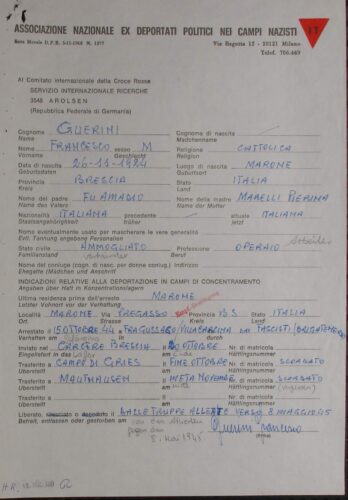 ASSOCIAZIONE NAZIONALE EX DEPORTATI POLITICI NEI CAMPI NAZISTI
IT
Ente Morale D.P.R. 5-11-1968 N. 1377
Via Bagutta 12 - 20121 Milano
Telef. 706.449
Al Comitato Internazionale della Croce Rossa
SERVIZIO INTERNAZIONALE RICERCHE
3548 AROLSEN
(Repubblica Federale di Germania)
Cognome GUERINI Cognome di nascita
Name Mädchenname
Nome FRANCESCO sesso M Religione CATTOLICA
Vorname Geschlecht Religion
Data di nascita 26-11-1924 Luogo di nascita MARONE
Geburtsdaten Geburtsort
Provincia BRESCIA Stato ITALIA
Kreis Land
Nome del padre FU AMADIO Nome della madre MARELLI PIERINA
Name des Vaters Name der Mutter
Nazionalità ITALIANA precedente attuale ITALIANA
Staatsangehörigkeit früher jetzt
Nome eventualmente usato per mascherare le vere generalità
Evtl. Tannung engebene Personalien
Stato civile AMMOGLIATO Professione OPERAIO
Familienstand Beruf
Nome del coniuge (cogn. di nasc. per donne coniug.) indirizzo
Ehegatte (Mädchen und Anschrift)
INDICAZIONI RELATIVE ALLA DEPORTAZIONE IN CAMPI DI CONCENTRAMENTO
Angaben über Haft in Konzentrationslagern
Ultima residenza prima dell'arresto MARONE
Letzter Wohnort vor der Verhaftung
Località MARONE Via PREGASSO Prov. BS Stato ITALIA
Ort Strasse Kreis Land
Arrestato il 15 OTTOBRE 44 a da FASCISTI
Verhaftet am in durch
Inviato nel CARCERE BRESCIA il OTTOBRE Nr di matricola
Eingeliefert in das am Häftlingsnummer
Trasferito a CAMPO DI GRIES il FINE OTTOBRE Nr di matricola SCORDATO
Überstellt am Häftlingsnummer
Trasferito a MAUTHAUSEN il METÀ NOVEMBRE Nr di matricola SCORDATO
Überstellt am Häftlingsnummer
Trasferito a il Nr di matricola
Überstellt am Häftlingsnummer
Liberato, DALLE TRUPPE ALLEATE VERSO 8 MAGGIO 45
Befreit, entlassen oder gestorben am
8. Mai 1945
Guerini Francesco
(firma)